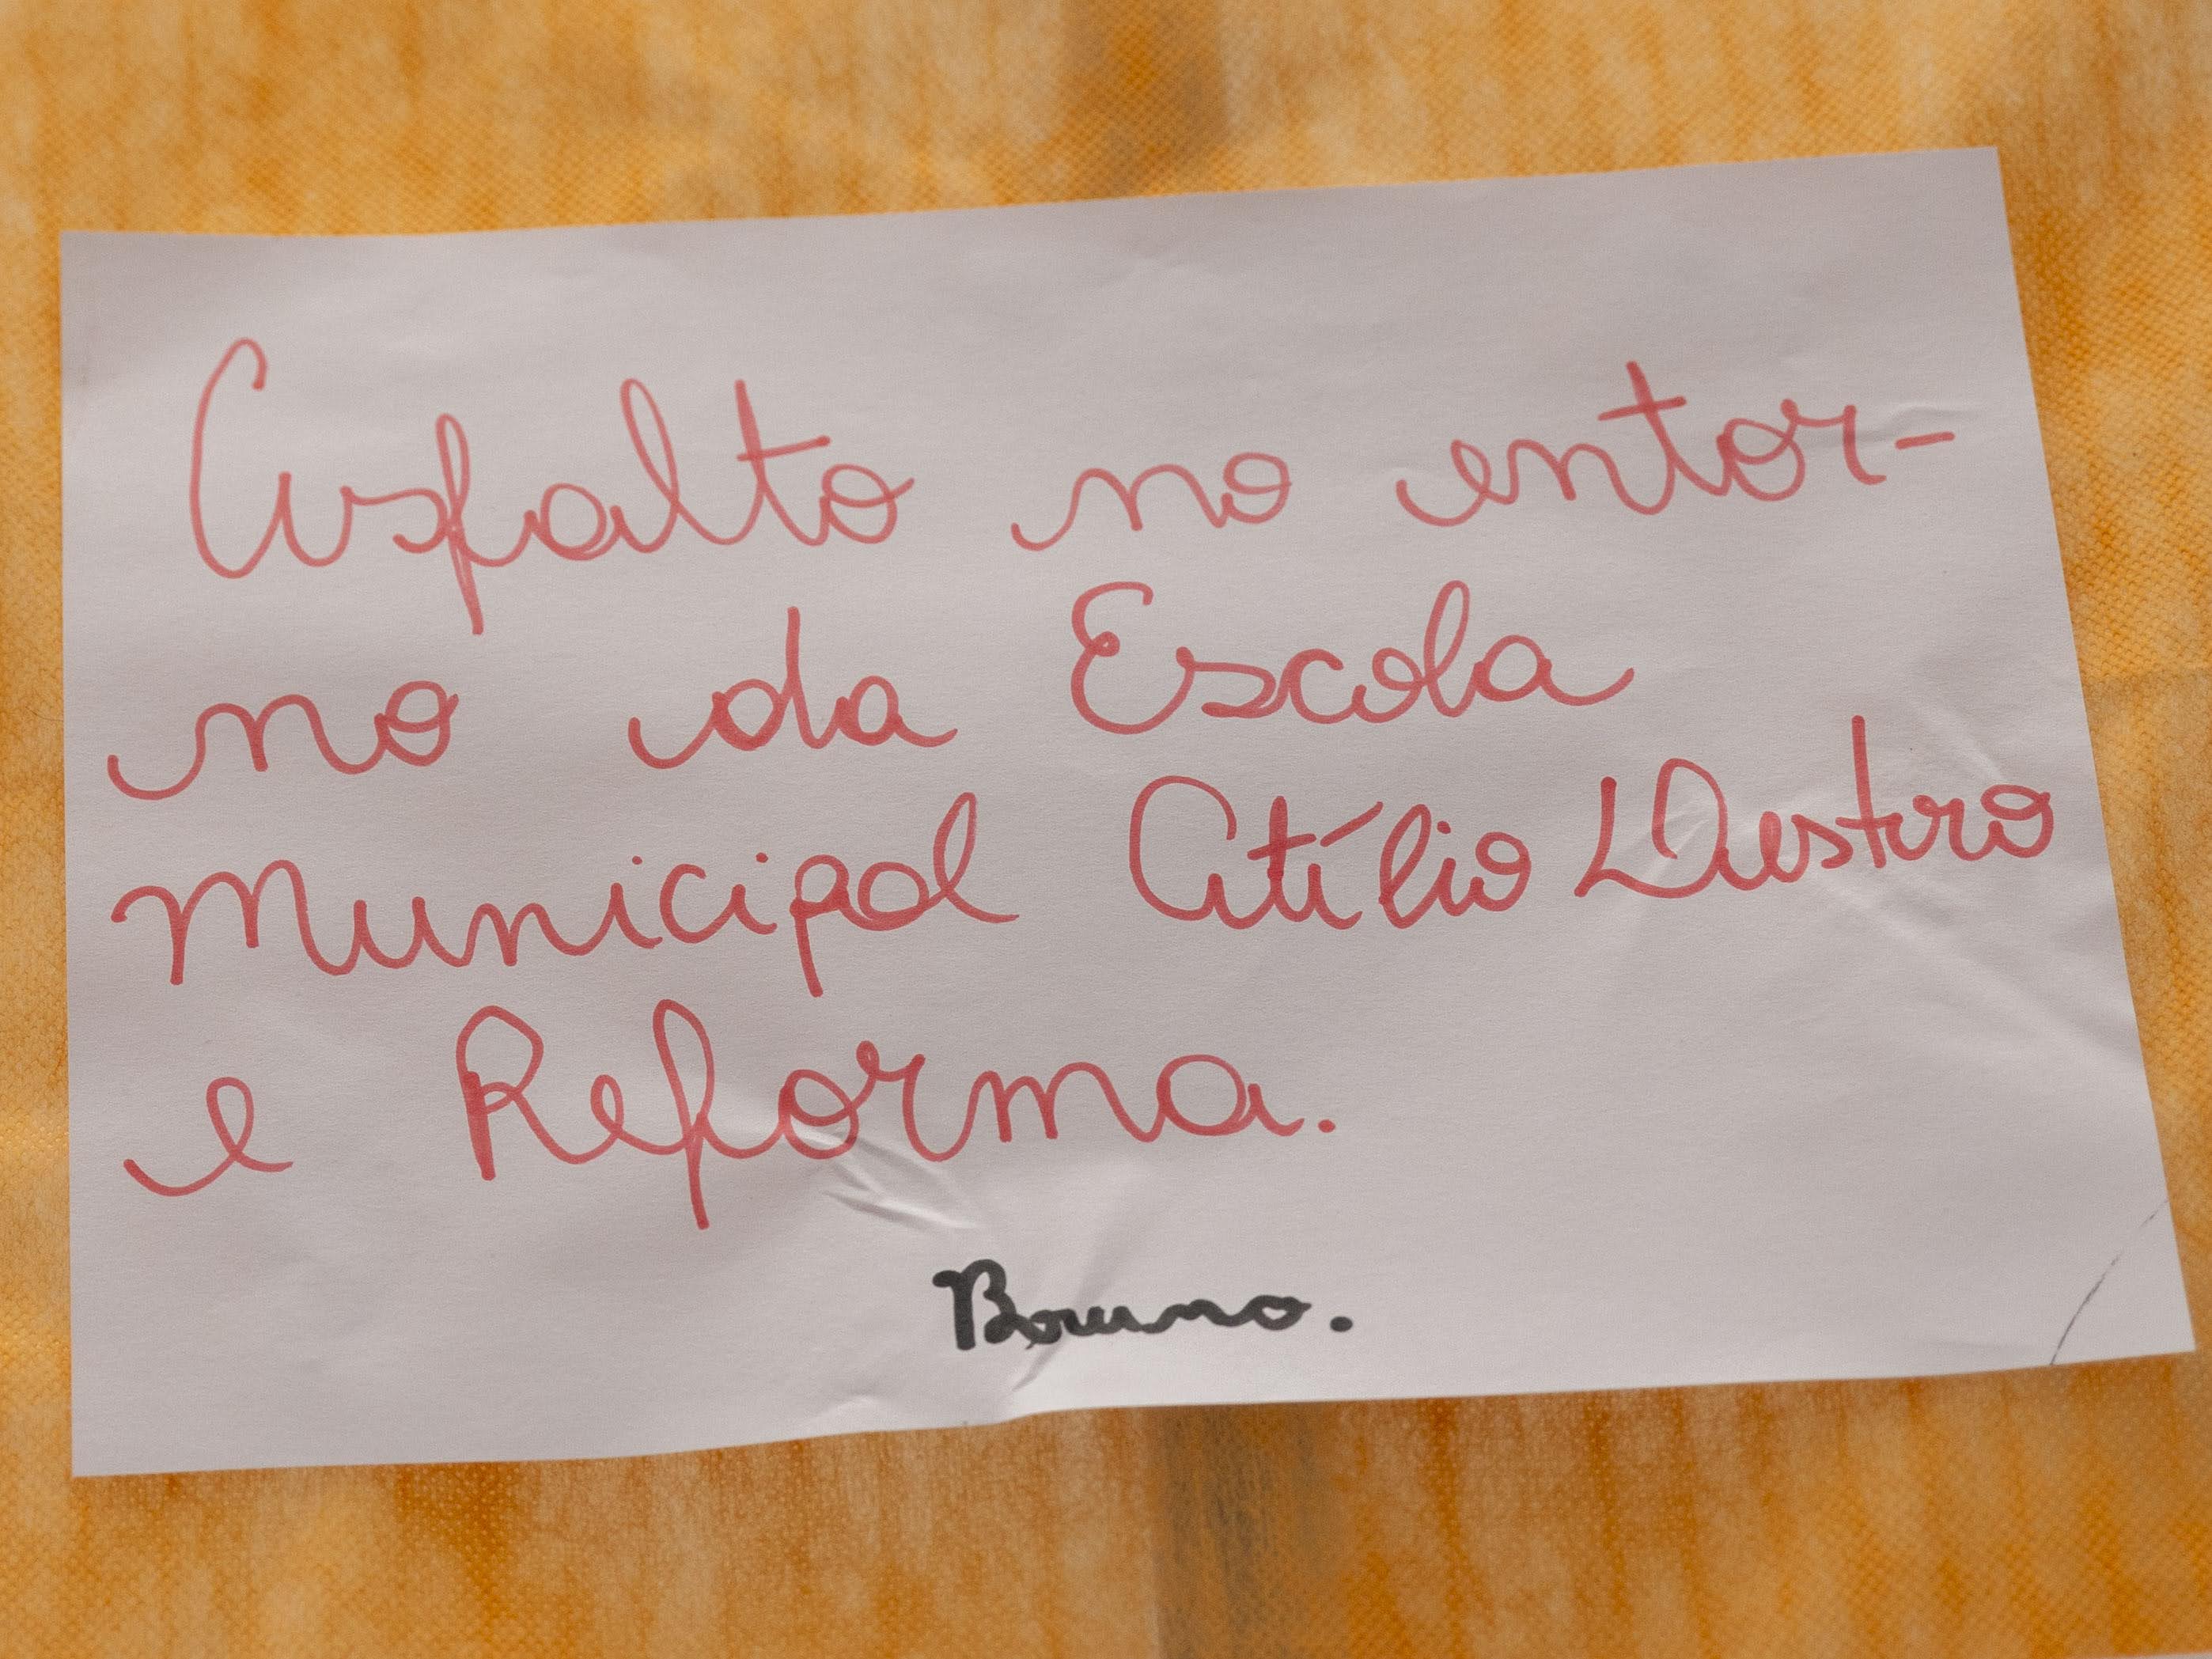 Asfalto no entor-
no da Escola
Municipal Atílio Destro
e Reforma.
Bruno.